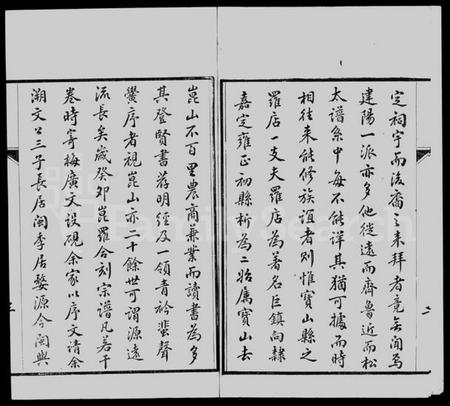 定祠宇而後裔之来拜者竟无间焉
建陽一派亦多他徙遠而齊魯近而松
太譜系中每不能詳其猶可據而時
相往来能修族誼者則惟寳山縣之
羅店一支夫羅店為著名巨鎮向隸
嘉定雍正初縣析為二始屬寳山去
崑山不百里農商兼業而讀書為多
其登賢書荐明經及一領青衿蜚聲
黌序者視崑山亦二十餘世可謂源遠
流長矣歲癸卯崑羅合刻宗譜凡若干
卷時寄梅廣文設硯余家以序文請余
溯文公三子長居閩季居婺源今閩與
二
三
FamilySearch